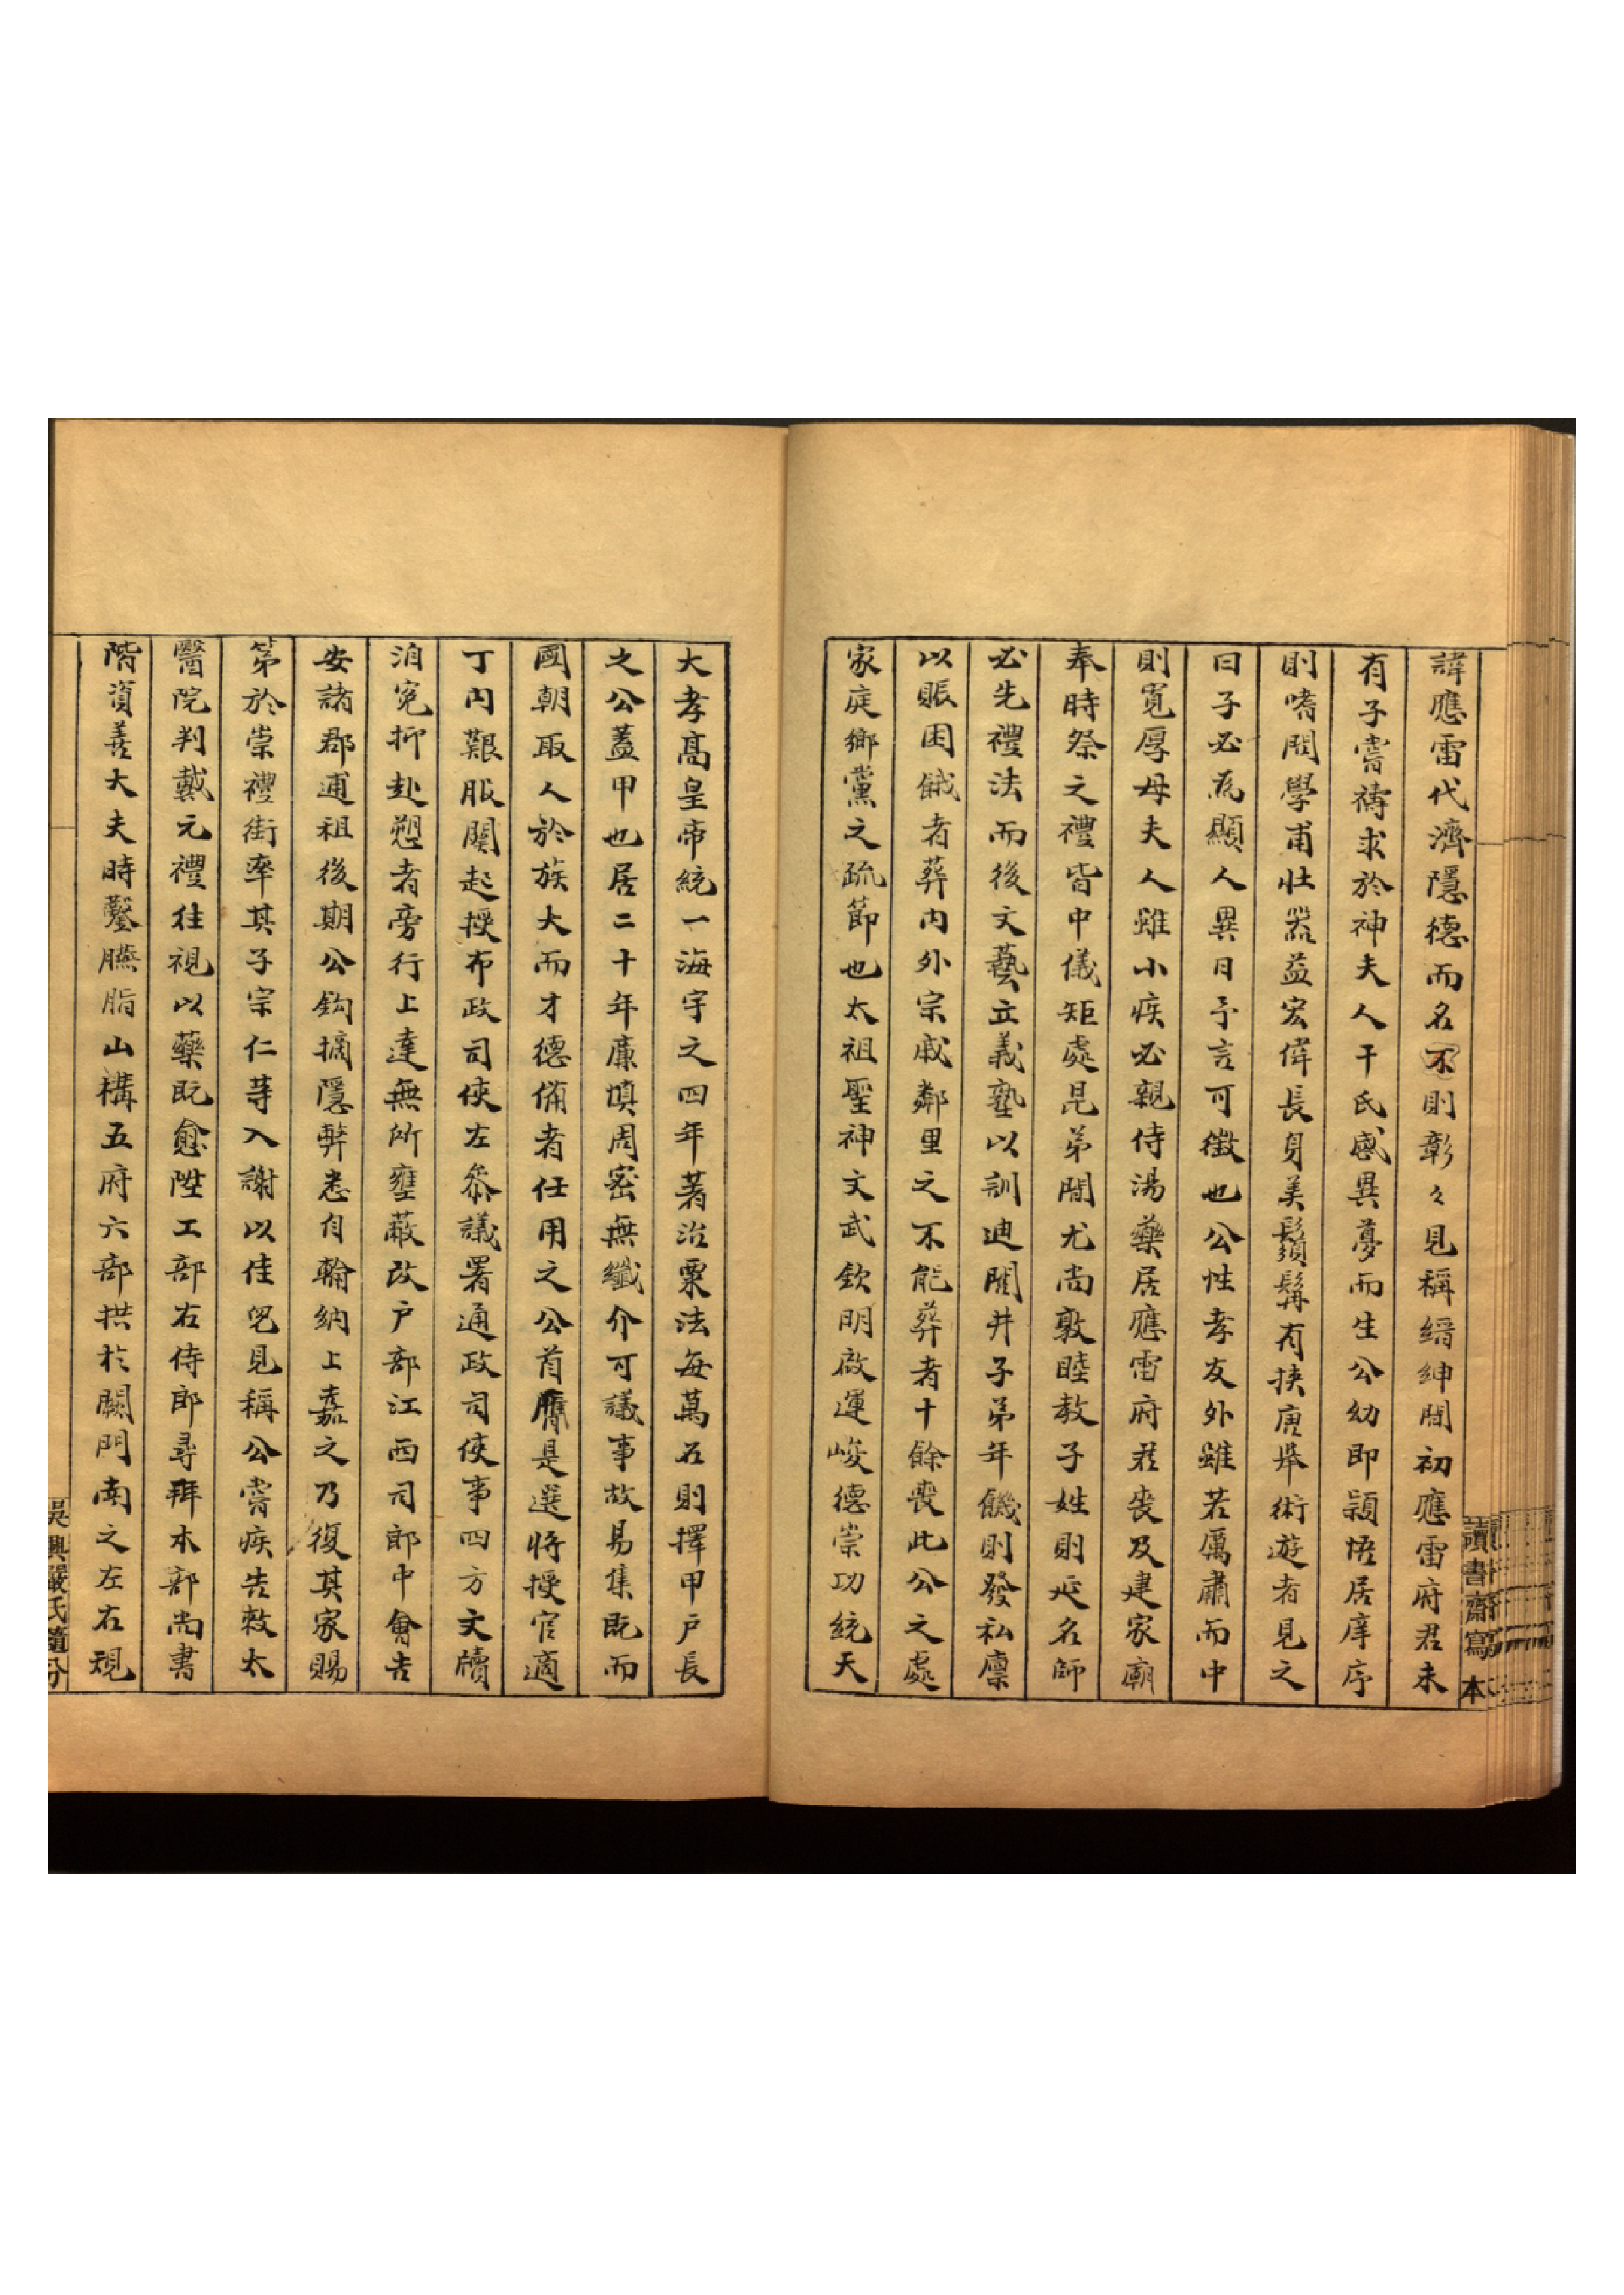 諱應雷代濟隱德而名不則彰々見稱縉紳間初應雷府君未
有子嘗禱求於神夫人干氏感異夢而生公幼即穎悟居庠序
則嗜問學甫壯器益宏偉長身美鬚髯有挾唐舉術遊者見之
曰子必爲顯人異日予言可徵也公性孝友外雖若厲肅而中
則寬厚母夫人雖小疾必親侍湯藥居應雷府君喪及建家廟
奉時祭之禮皆中儀矩處昆弟間尤尚敦睦教子姓則延名師
必先禮法而後文藝立義塾以訓迪閭井子弟年饑則發私廩
以賑困餓者葬内外宗戚鄰里之不能葬者十餘喪此公之處
家庭鄉黨之疏節也太祖聖神文武欽明啟運峻德崇功統天
大孝高皇帝統一海宇之四年著治粟法每萬石則擇甲户長
之公蓋甲也居二十年廉填周密無纖介可議事故易集既而
國朝取人於族大而才德備者任用之公首膺是選將授官適
丁内艱服闋起授布政司使左叅議署通政司使事四方文牘
洎冤抑赴愬者旁行上達無所壅蔽改户部江西司郎中會吉
安諸郡逋租後期公鈎摘隱弊悉自輸納上嘉之乃復其家賜
第於崇禮街率其子宗仁等入謝以佳兒見稱公嘗疾告敕太
醫院判戴元禮往視以藥既愈陞工部右侍郎尋拜本部尚書
階資善大夫時鑿臙脂山構五府六部拱於闕門南之左右規
讀書齋寫本
吳興嚴氏隨分